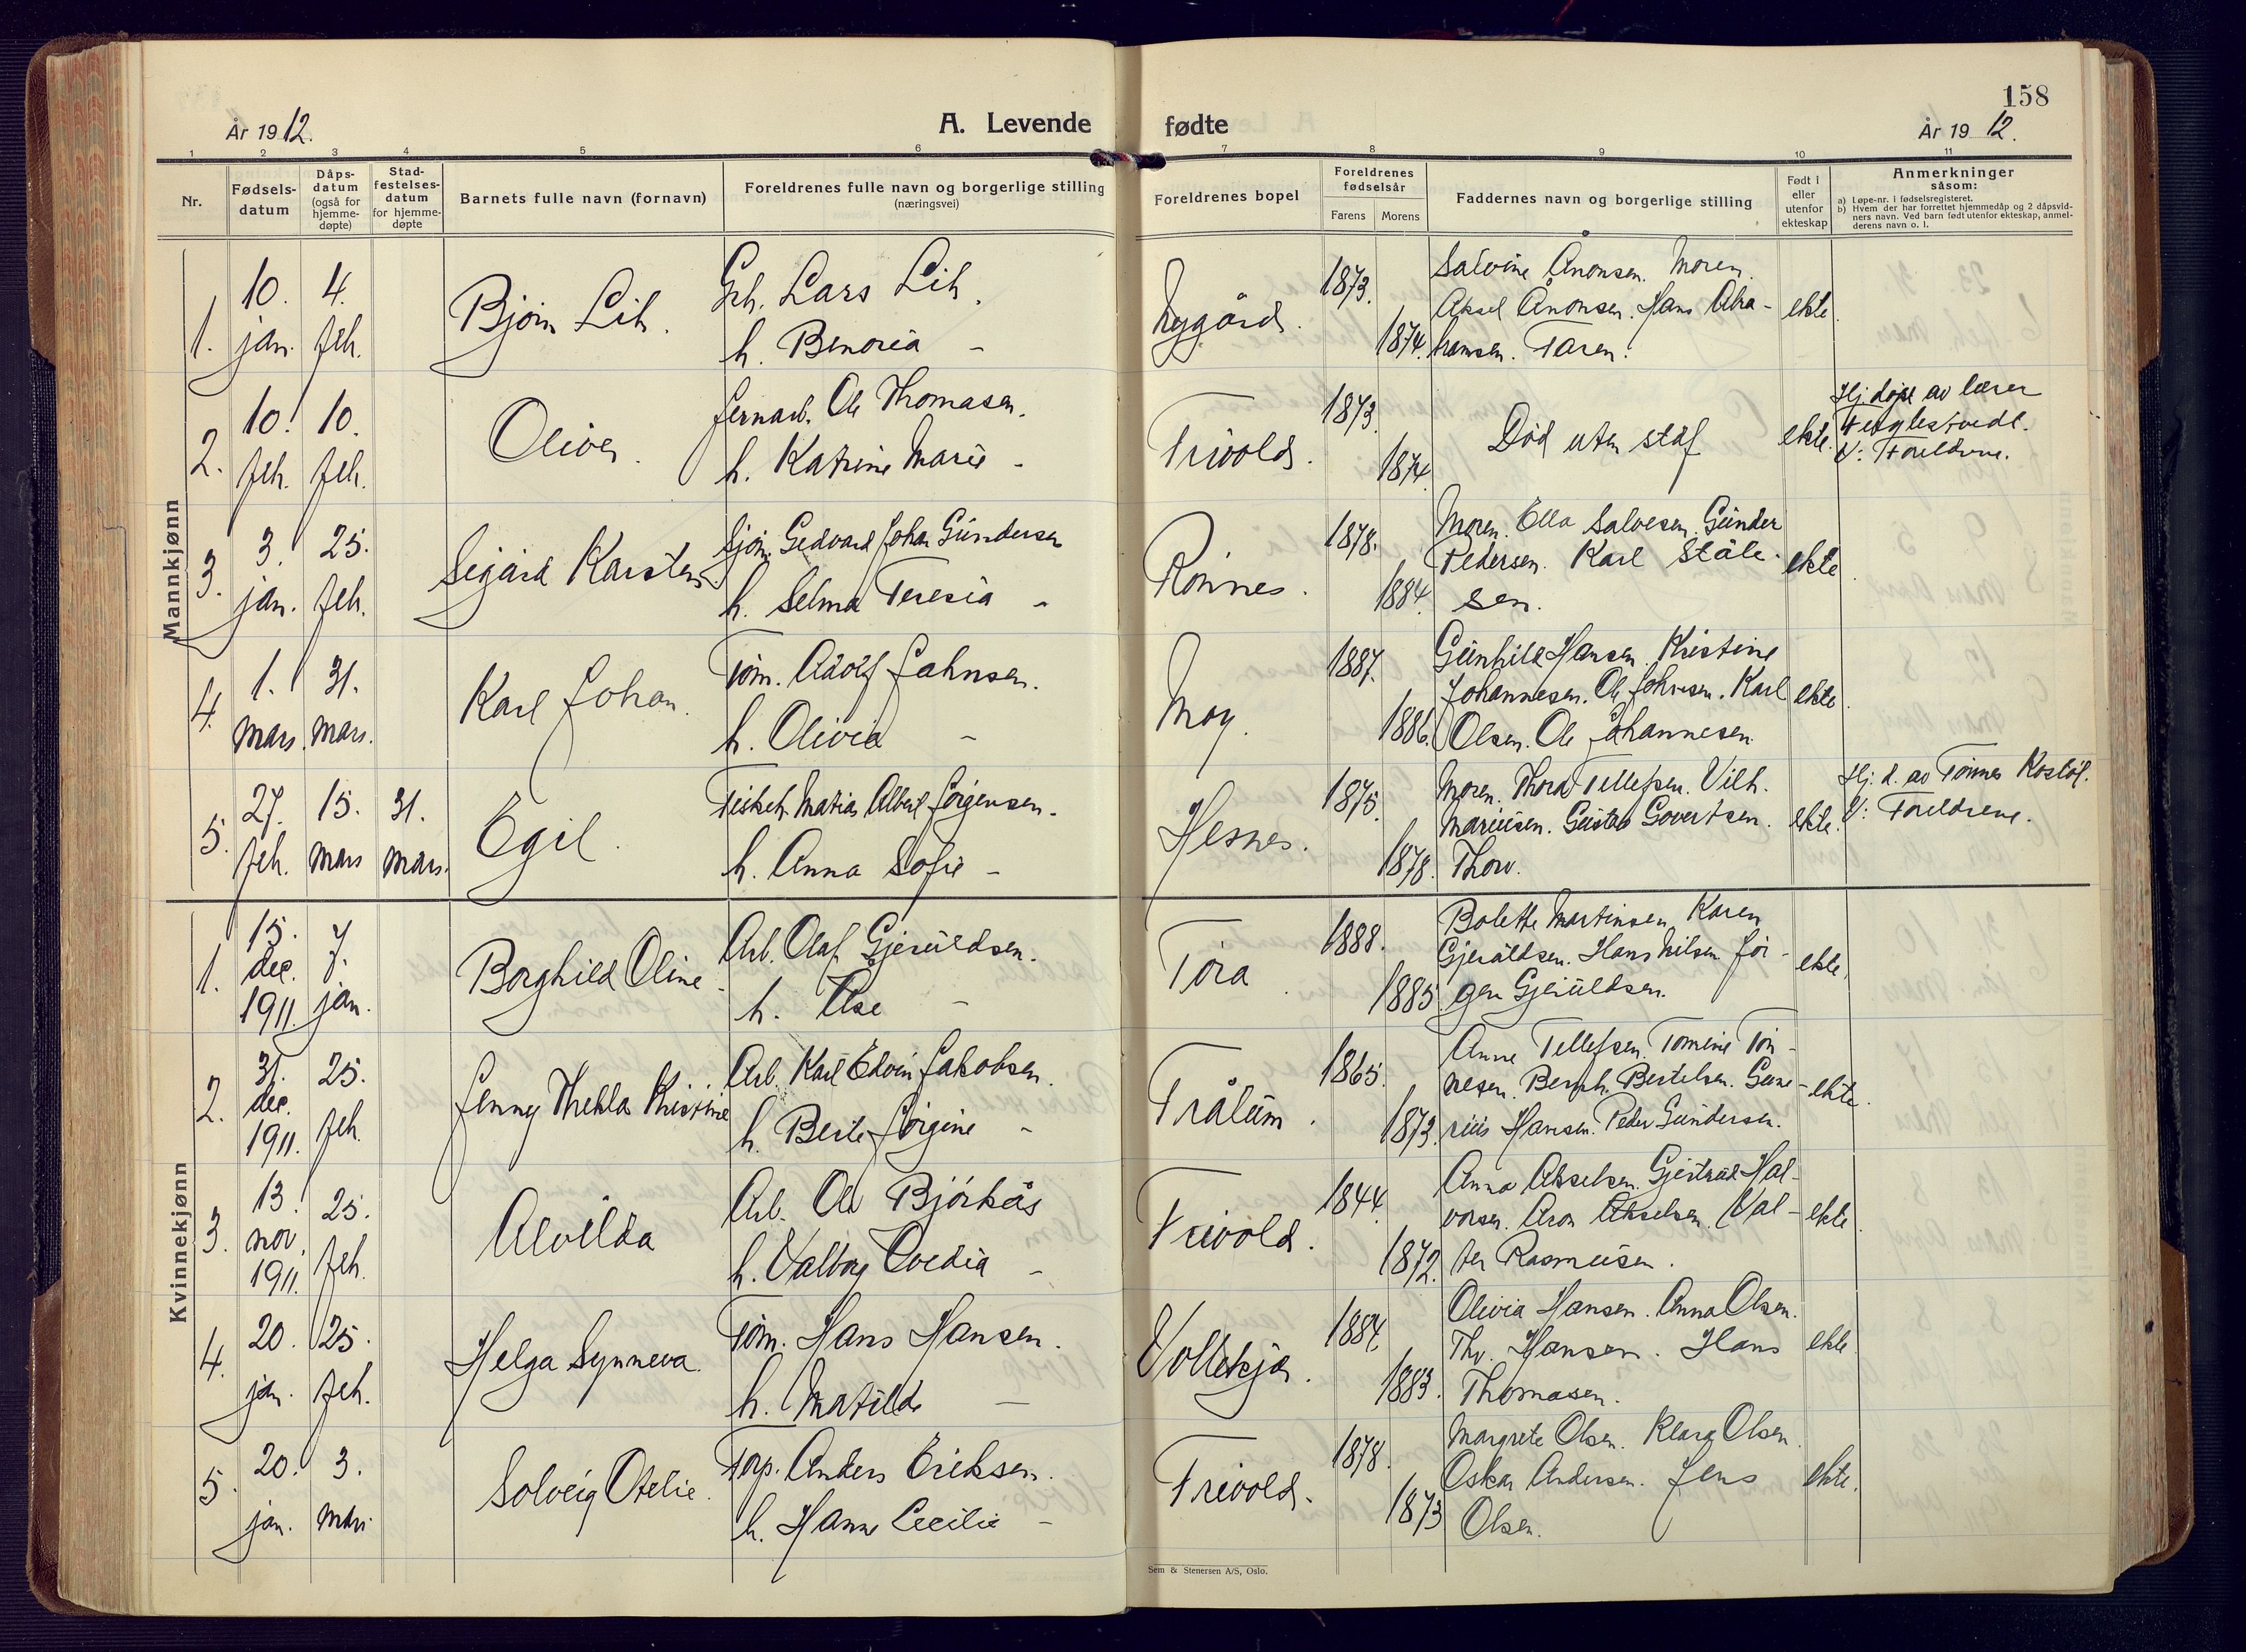 158
År 1912.
A. Levende fødte
År 1912.
1 2 3 4 5 6 7 8 9 10 11
Nr.
Fødsels-
datum
Dåps-
datum
(også for
hjemme-
døpte)
Stad-
festelses-
datum
for hjemme-
døpte
Barnets fulle navn (fornavn)
Foreldrenes fulle navn og borgerlige stilling
(næringsvei)
Foreldrenes bopel
Foreldrenes
fødselsår
Farens Morens
Faddernes navn og borgerlige stilling
Født i
eller
utenfor
ekteskap
Anmerkninger
såsom:
a) Løpe-nr. i fødselsregisteret.
b) Hvem der har forrettet hjemmedåp og 2 dåpsvid-
ners navn. Ved barn født utenfor ekteskap, anmel-
derens navn o. l.
Mannkjønn
1.
10. jan.
4. feb.
Bjørn Lih.
Lars Lih.
h. Benoria -
Nygård.
1873.
1874.
Salvine Ånonsen. Moren.
Aksel Ånonsen. Hans Abra-
hamsen. Faren.
ekte.
2.
10. feb.
10. feb.
Oliver.
Jernarb. Ole Thomasen.
h. Katrine Marie -
Frivold.
1873.
1874.
Død uten
ekte.
Hj. døpt av lærer
Fuglestvedt.
V: Foreldrene.
3.
3. jan.
25. feb.
Sigård Karsten
Sjøm. Gedvard Johan Gundersen
h. Selma Teresia -
Rønnes.
1878.
1884.
Moren. Ella Salvesen. Gunder
Pedersen. Karl Ståle-
sen.
ekte.
4.
1. mars.
31. mars.
Karl Johan.
Tøm. Adolf Jahnsen.
h. Olivia -
Moy.
1887.
1886.
Gunhild Hansen. Kristine
Johannesen. Ole Johnsen. Karl
Olsen. Ole Johannesen.
ekte.
5.
27. feb.
15. mars
31. mars.
Egil.
Matias Albert Jørgensen.
h. Anna Sofie -
Hesnes.
1875.
1878.
Moren. Thora Tellefsen. Vilh.
Mariusen. Gustav Govertsen.
Thorv.
ekte.
Hj. d. av Tønnes Kostøl.
V: Foreldrene.
Kvinnekjønn
1.
15. dec. 1911.
7. jan.
Borghild Oline
Arb. Olaf Gjeruldsen.
h. Else -
Tøra
1888.
1885.
Bolette Martinsen. Karen
Gjeruldsen. Hans Nilsen. Jør-
gen Gjeruldsen.
ekte.
2.
31. dec. 1911.
25. feb.
Jenny Thekla Kristine
Arb. Karl Edvin Jakobsen.
h. Berte Jørgine -
Trålum.
1865.
1873.
Anne Tellefsen. Tomine Tøn-
nesen. Bernh. Bertelsen. Gune-
rius Hansen. Peder Gundersen.
ekte.
3.
13. nov. 1911.
25. feb.
Alvilda
Arb. Ole Bjørkås
h. Valborg Ovedia -
Frivold.
1844.
1872.
Anna Akselsen. Gjertrud Hal-
vorsen. Aron Akselsen. Val-
ter Rasmusen.
ekte.
4.
20. jan.
25. feb.
Helga Synneva.
Tøm. Hans Hansen.
h. Matilde -
Vollekjær.
1884.
1883.
Olivia Hansen. Anna Olsen.
Thv. Hansen. Hans
Thomasen.
ekte.
5.
20. jan.
3. mars
Solveig Otelie.
Torp. Anders Eriksen.
h. Hanne Cecilie -
Frivold.
1878.
1873
Margrete Olsen. Klara Olsen
Oskar Andersen. Jens
Olsen.
ekte.
Sem & Stenersen A/S, Oslo.